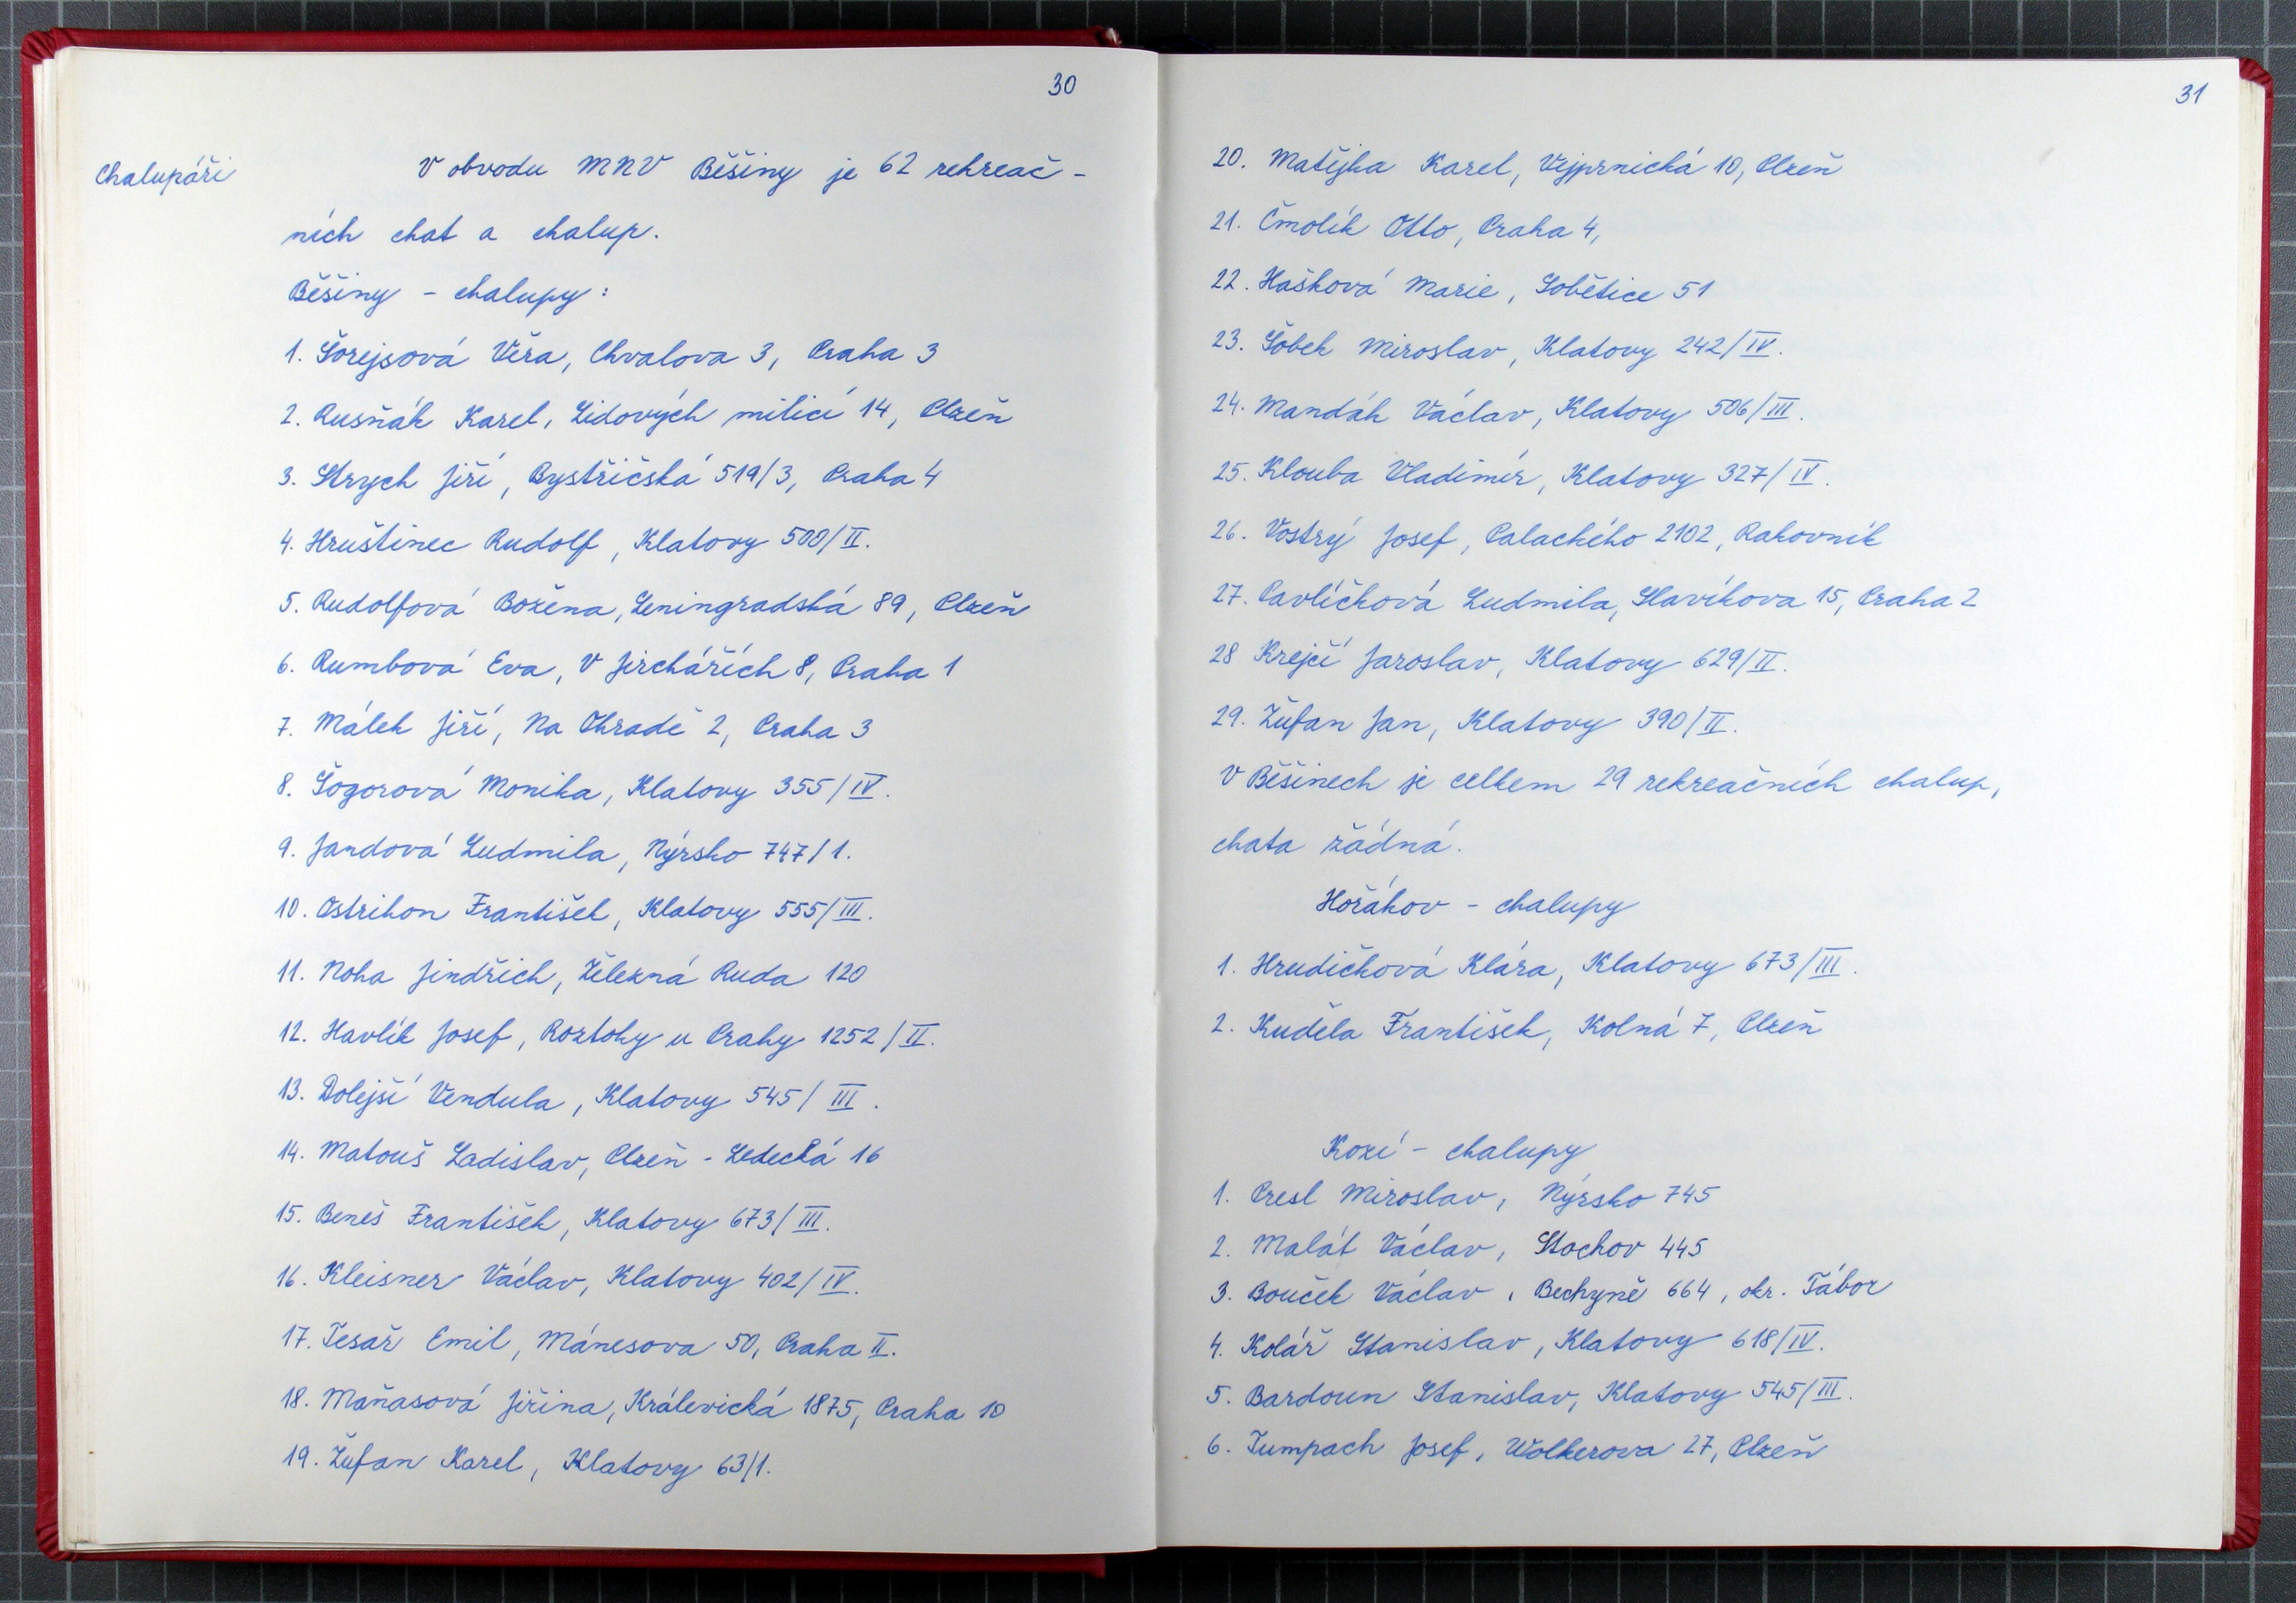 30
Chalupáři
V obvodu MNV Běšiny je 62 rekreač-
ních chat a chalup.
Běšiny - chalupy:
1. Šorejsová Věra, Chvalova 3, Praha 3
2. Rusňák Karel, Lidových milicí 14, Plzeň
3. Strych Jiří, Bystřičská 519/3, Praha 4
4. Hruštinec Rudolf, Klatovy 500/II.
5. Rudolfová Božena, Leningradská 89, Plzeň
6. Rumbová Eva, V Jirchářích 8, Praha 1
7. Málek Jiří, Na Ohradě 2, Praha 3
8. Šogorová Monika, Klatovy 355/IV.
9. Jandová Ludmila, Nýrsko 747/1.
10. Ostrihon František, Klatovy 555/III.
11. Noha Jindřich, Železná Ruda 120
12. Havlík Josef, Roztoky u Prahy 1252/II.
13. Dolejší Vendula, Klatovy 545/III.
14. Matouš Ladislav, Plzeň - Ledecká 16
15. Beneš František, Klatovy 673/III.
16. Kleisner Václav, Klatovy 402/IV.
17. Tesař Emil, Mánesova 50, Praha II.
18. Maňasová Jiřina, Králevická 1875, Praha 10
19. Žufan Karel, Klatovy 63/1.
31
20. Matějka Karel, Vejprnická 10, Plzeň
21. Čmolík Otto, Praha 4,
22. Hašková Marie, Sobětice 51
23. Šöbek Miroslav, Klatovy 242/IV.
24. Mandák Václav, Klatovy 506/III.
25. Klouba Vladimír, Klatovy 327/IV.
26. Vostrý Josef, Palackého 2102, Rakovník
27. Pavlíčková Ludmila, Slavíkova 15, Praha 2
28 Krejčí Jaroslav, Klatovy 629/II.
29. Žufan Jan, Klatovy 390/II.
V Běšinech je celkem 29 rekreačních chalup,
chata žádná.
Hořákov - chalupy
1. Hrudičková Klára, Klatovy 673/III.
2. Kuděla František, Kolná 7, Plzeň
Kozí - chalupy
1. Presl Miroslav, Nýrsko 745
2. Malát Václav, Stochov 445
3. Bouček Václav, Bechyně 664, okr. Tábor
4. Kolář Stanislav, Klatovy 618/IV.
5. Bardoun Stanislav, Klatovy 545/III.
6. Tumpach Josef, Wolkerova 27, Plzeň